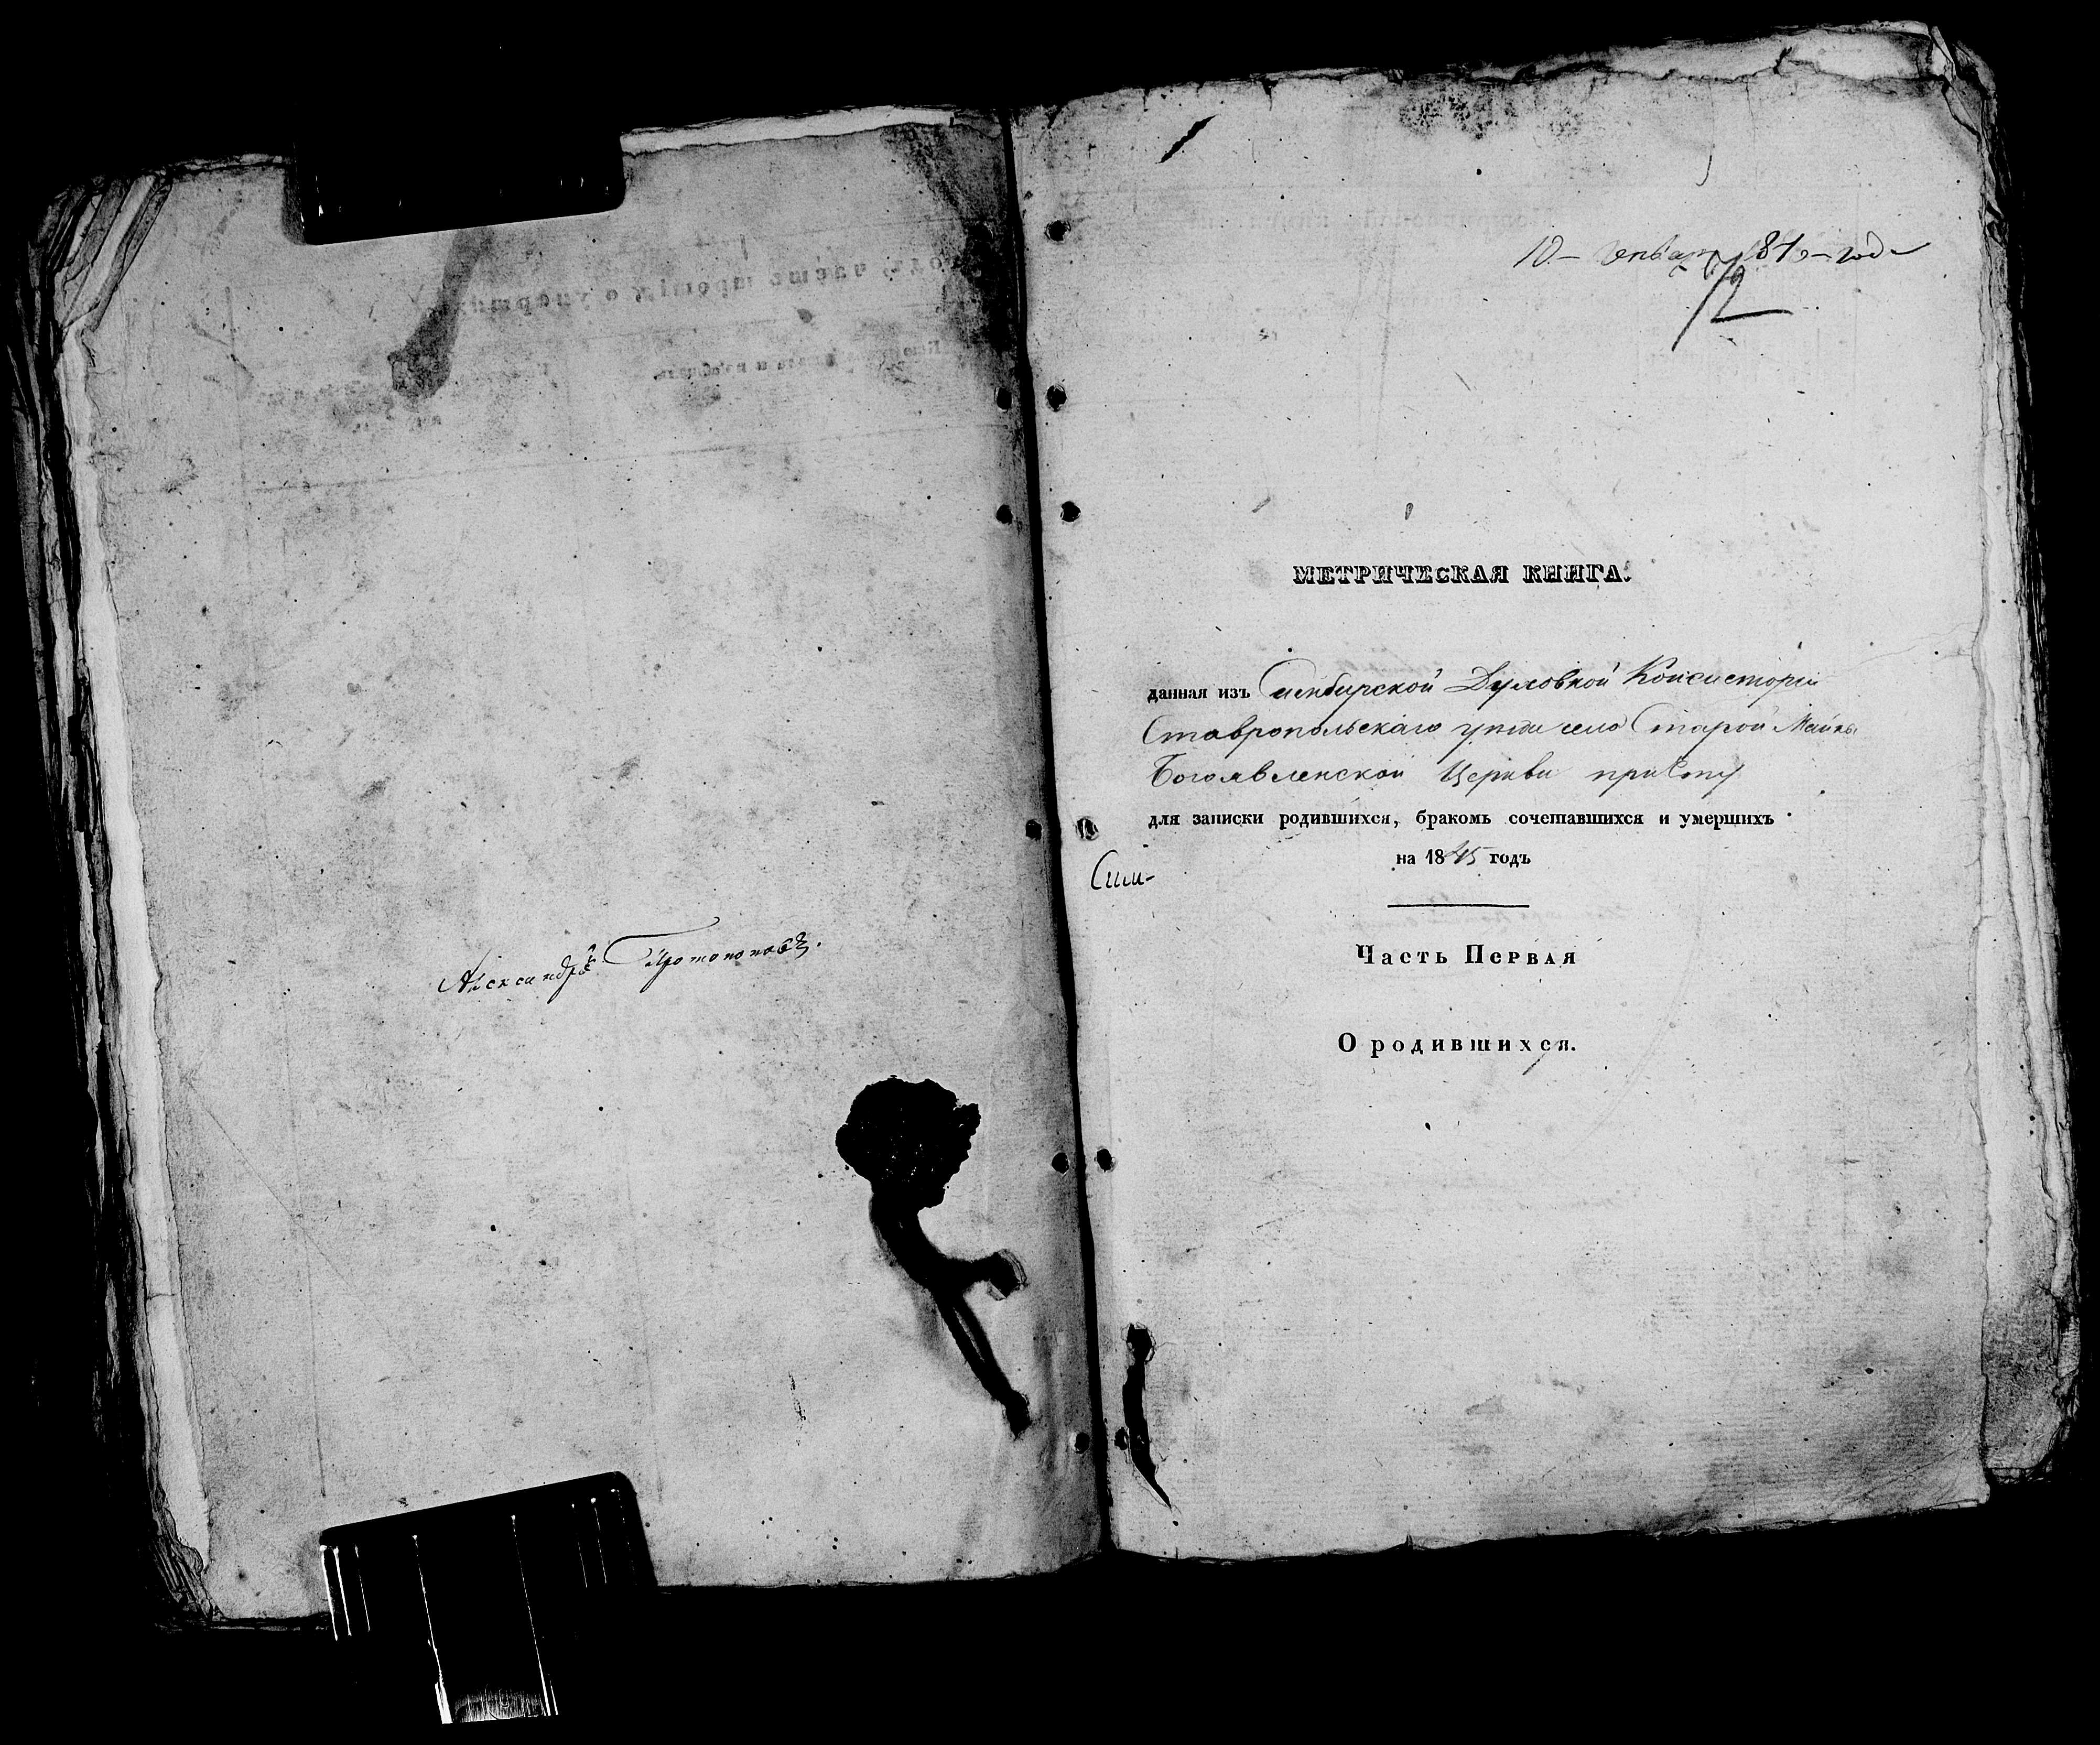 Александръ Протопоповъ.
10 - января 184 - года
12
МЕТРИЧЕСКАЯ КНИГА.
данная изъ Симбирской Духовной Консисторіи
Ставропольскаго уезда село Старой Майны
Богоявленской Церкви причту
для записки родившихся, бракомъ сочетавшихся и умершихъ
на 1845 годъ
Сим-
Часть Первая
О родившихся.